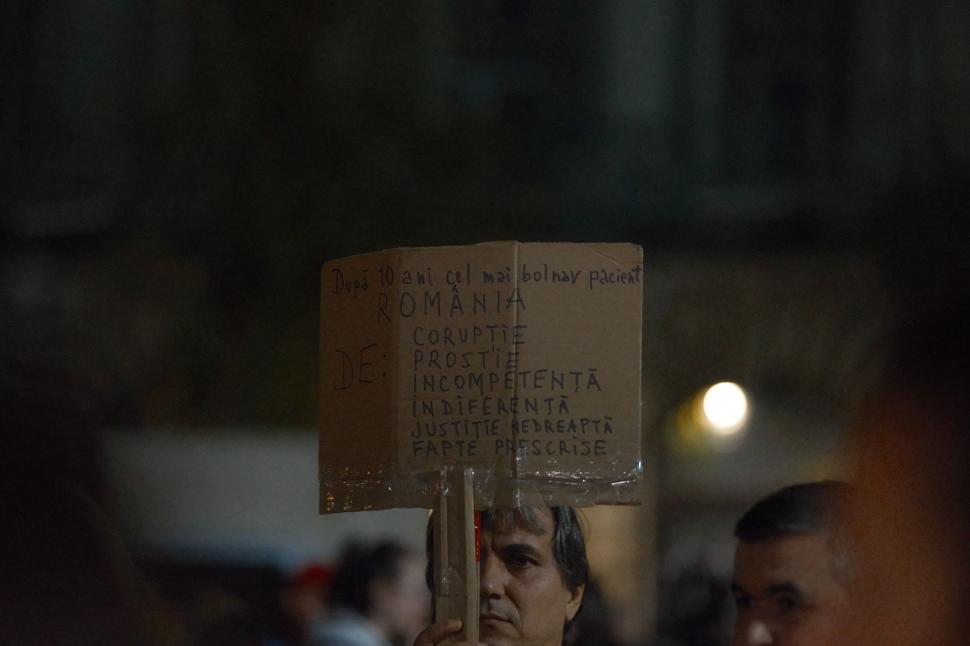 După 10 ani cel mai bolnav pacient
ROMÂNIA
DE:
CORUPȚIE
PROSTIE
INCOMPETENȚĂ
INDIFERENȚĂ
JUSTIȚIE NEDREAPTĂ
FAPTE PRESCRISE